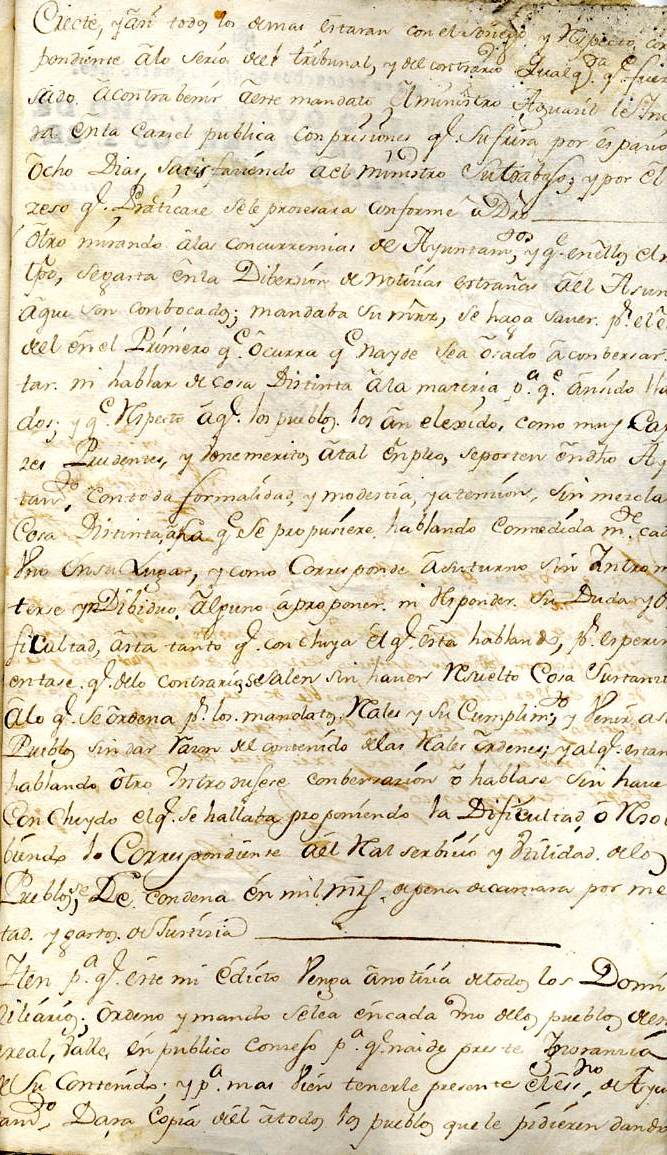 Creete, y âsi todos los demas estaran con el sosiego y Respecto, co
pondiente âlo serio del tribunal, y de contrario Qualq.ª q.e fuer
sado âcontrabenir âeste mandato el ministro Aguacil le
da enla Carzel publica con prisiones q.e sufrira por espacio
ôcho Dias, satisfaciendo âel ministro Su trabajo; y por el
zeso q.e Practicare se le prozesara conforme â Dro
Otro mirando âlas concurrencias de Ayuntam.tos y q.e enellos el m
tpo, se gasta en la Diberzion de noticias estrañas âel Asun
âque son combocados; mandaba su mrz, se haga saver p.r el
del en el Primero q.e ôcurra q.e nayde sea ôsado âconbersar
tar ni hablar de cosa Distinta âla materia p.ª q.e ânsido lla
dos; y q.e Respecto âq.e los pueblos los ân elexido, como muy Ca
zes Prudentes, y benemeritos âtal enpleo, se porten en dho Ay
tam.to con toda formalidad, y modestia, y atenzion, sin mezcla
Cosa Distinta, âla q.e se propusiere, hablando Comedida m.te cad
Vno en su Lugar, y como Corresponde âsu turno sin Introm
terse yndibiduo âlguno âproponer ni Responder su Duda y
ficultad, âsta tanto q.e concluya el q.e esta hablando, p.r esperim
entase q.e delo contrario, se salen sin haver Resuelto Cosa
âlo q.e se ôrdena p.r los mandatos Reales y su Cumplim.to y benir a s
Pueblos sin dar Razon del contenido delas Reales ôrdenes; y al q.e estan
hablando ôtro Introdusese conberrazion ô hablase sin have
Concluydo el q.e se hallaba proponiendo la Dificultad, ô Resol
biendo lo Correspondiente âel Real serbicio y Vtilidad delos
Pueblos, se le condena en mil mrs. de pena de camara por me
tad y gastos de Justizia
Iten p.ª q.e este mi edicto Venga ânoticia de todos los Domi
ziliarios; Ordeno y mando se lea en cada Vno delos pueblos de
real, Valle, en publico Consejo p.ª q.e naide preste Ynorancia
de su Contenido; y p.ª mas bien tenerle presente el ess.no de Ayu
tam.to Dara Copia del âtodos los pueblos que le pidieren dando